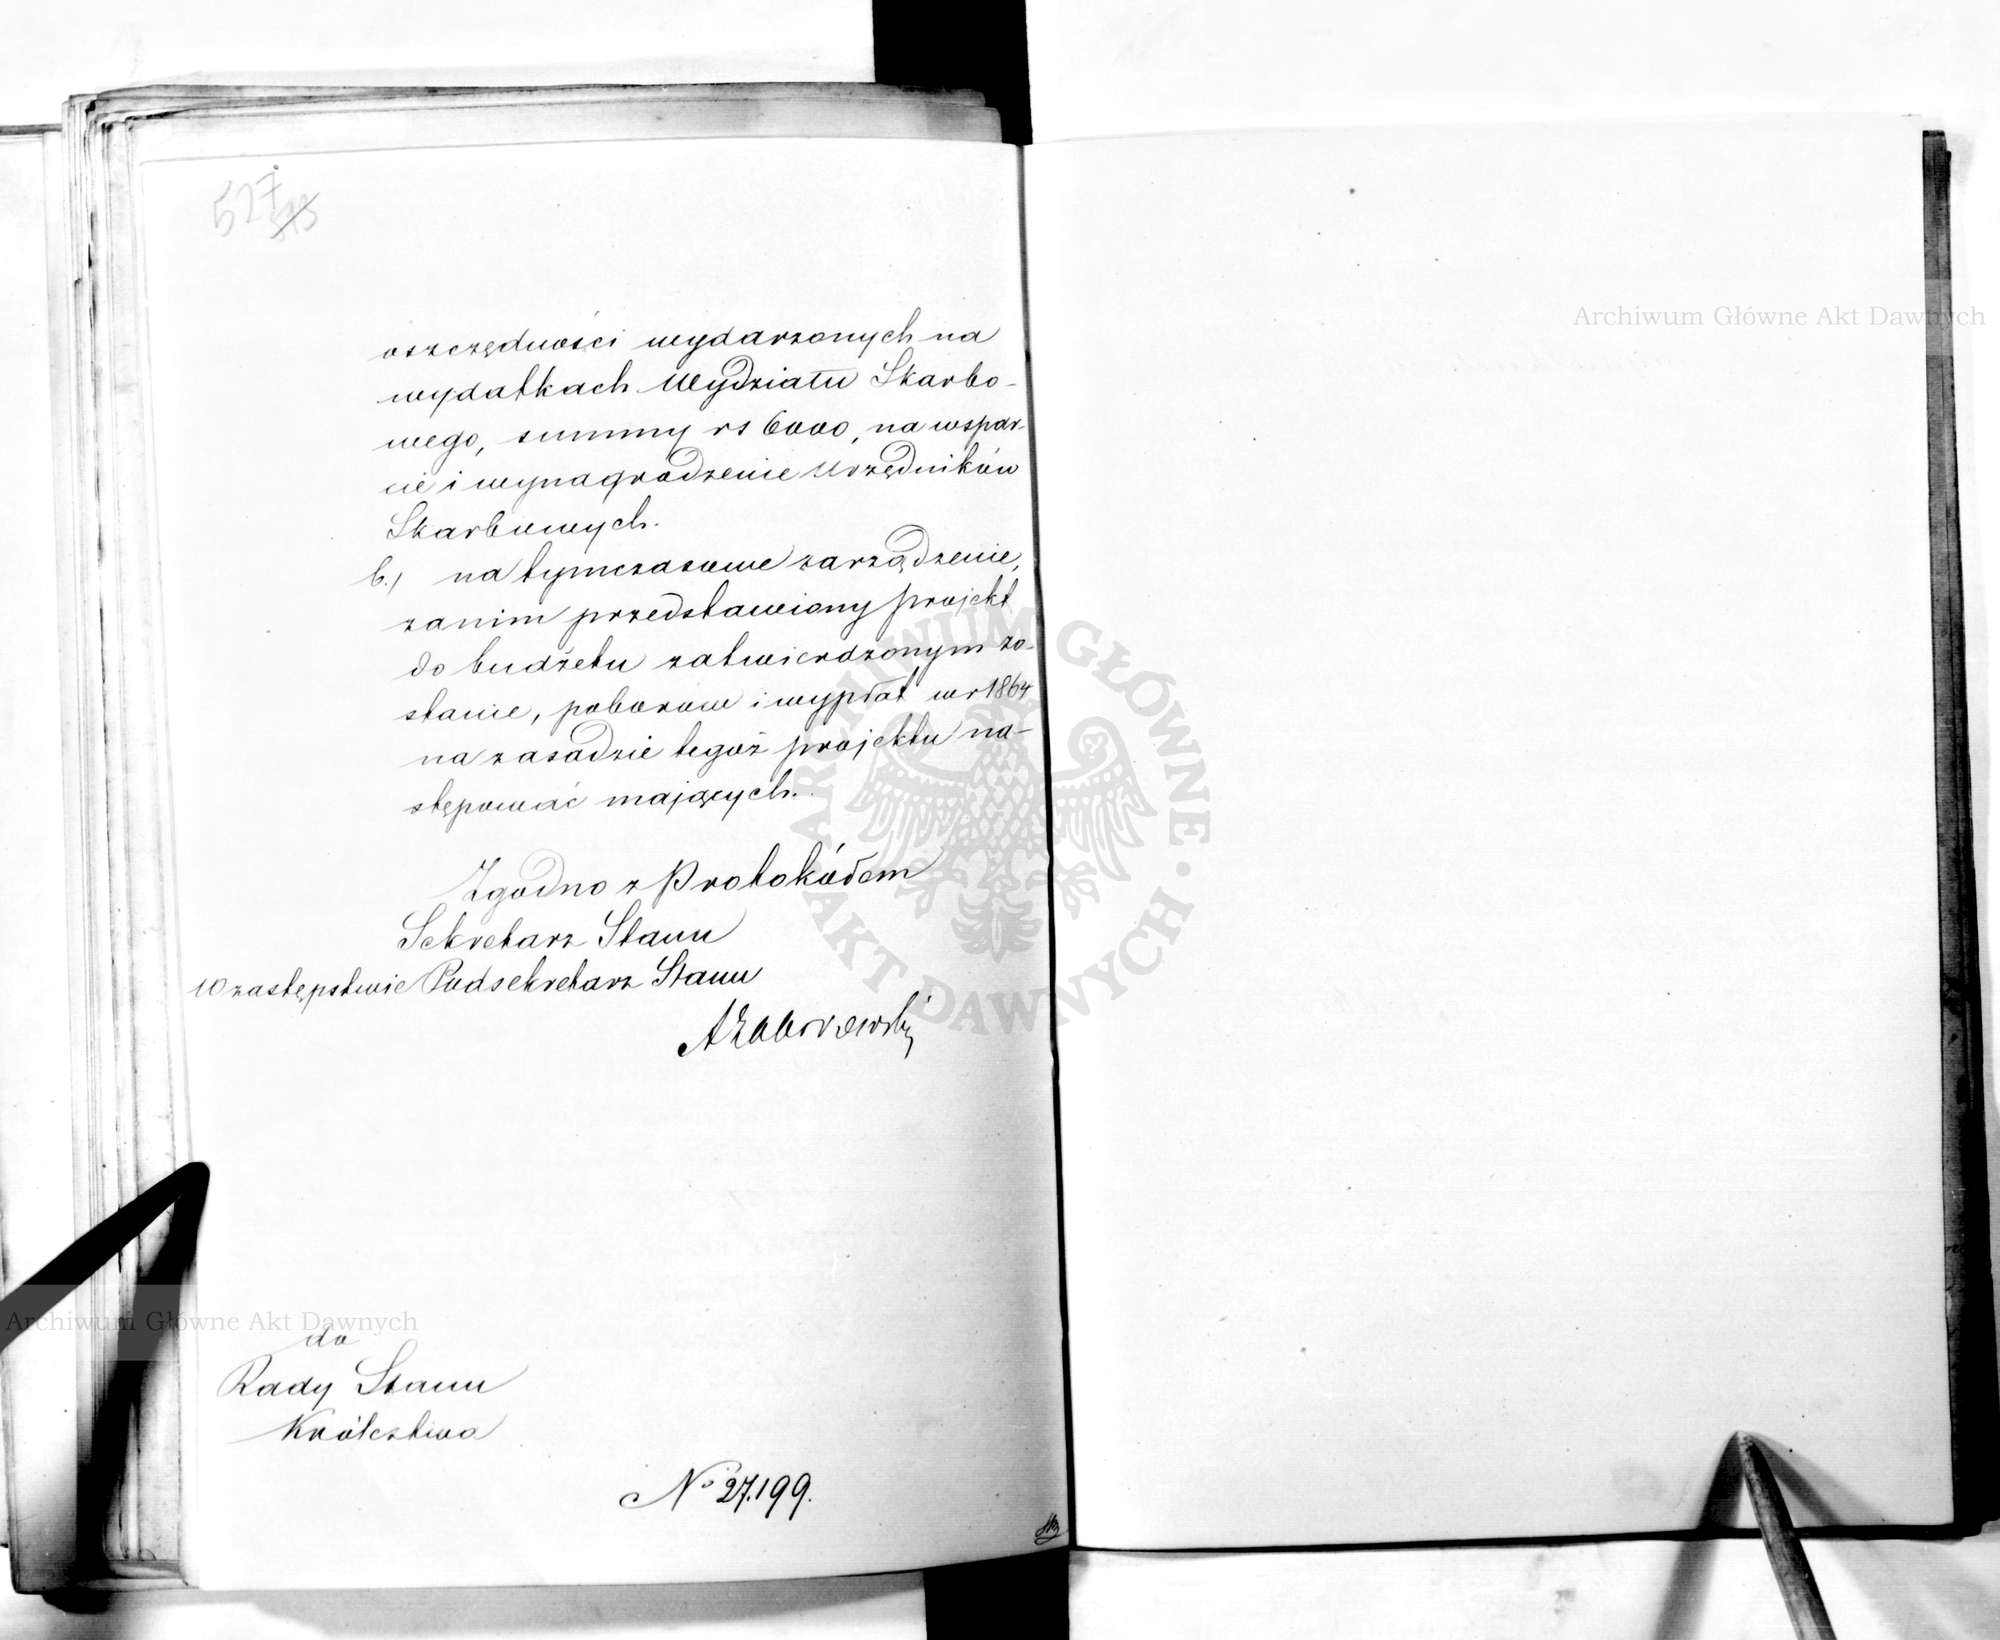 527
oszczędności wydarzonych na
wydatkach Wydziału Skarbo-
wego, summy rs 6000, na wspar-
cie i wynagrodzenie Urzędników
Skarbowych.
b.) na tymczasowe zarządzenie,
zanim przedstawiony projekt
do budżetu zatwierdzonym zo-
stanie, poborów i wypłat w r 1864
na zasadzie tegoż projektu na-
stępować mających.
Zgodno z Protokółem
Sekretarz Stanu
W zastępstwie Podsekretarz Stanu
AZaborowski
do
Rady Stanu
Królestwa
No 27.199.
Archiwum Główne Akt Dawnych
Archiwum Główne Akt Dawnych
ARCHIWUM GŁÓWNE · AKT DAWNYCH ·